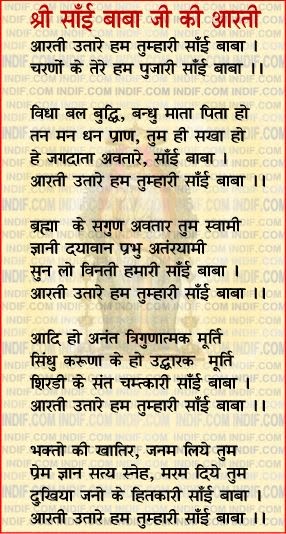 श्री साँई बाबा जी की आरती
आरती उतारे हम तुम्हारी साँई बाबा ।
चरणों के तेरे हम पुजारी साँई बाबा ।।
विधा बल बुद्धि, बन्धु माता पिता हो
तन मन धन प्राण, तुम ही सखा हो
हे जगदाता अवतारे, साँई बाबा ।
आरती उतारे हम तुम्हारी साँई बाबा ।।
ब्रह्मा के सगुण अवतार तुम स्वामी
ज्ञानी दयावान प्रभु अतंरयामी
सुन लो विनती हमारी साँई बाबा ।
आरती उतारे हम तुम्हारी साँई बाबा ।।
आदि हो अनंत त्रिगुणात्मक मूर्ति
सिंधु करूणा के हो उद्धारक मूर्ति
शिरडी के संत चमत्कारी साँई बाबा ।
आरती उतारे हम तुम्हारी साँई बाबा ।।
भक्तो की खातिर, जनम लिये तुम
प्रेम ज्ञान सत्य स्नेह, मरम दिये तुम
दुखिया जनो के हितकारी साँई बाबा ।
आरती उतारे हम तुम्हारी साँई बाबा ।।
INDIF.COM